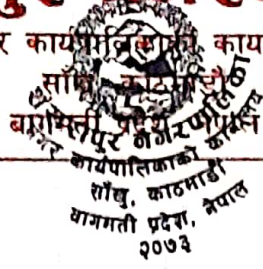 र कार्यपालिकाको काय
साँखु, काठमाडौं
बागमती प्रदेश, नेपाल
नगर कार्यपालिकाको कार्यालय
साँखु, काठमाडौं
बागमती प्रदेश, नेपाल
२०७३